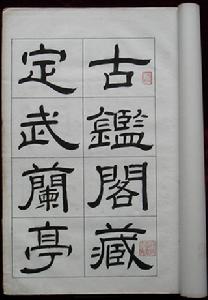 古鑑閣藏
定武蘭亭